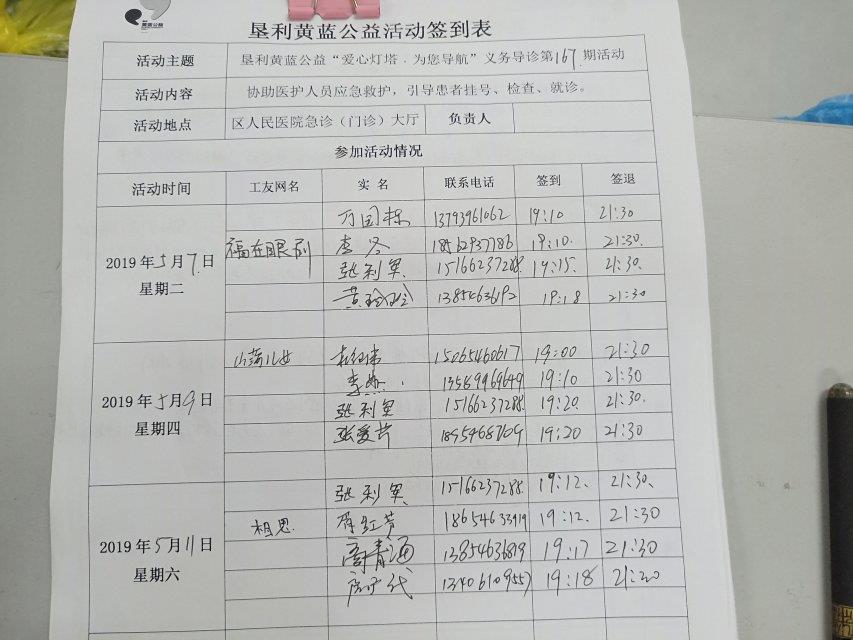 黄蓝公益
垦利黄蓝公益活动签到表
活动主题 垦利黄蓝公益“爱心灯塔·为您导航”义务导诊第167期活动
活动内容 协助医护人员应急救护，引导患者挂号、检查、就诊。
活动地点 区人民医院急诊（门诊）大厅 负责人
参加活动情况
活动时间 工友网名 实 名 联系电话 签到 签退
万国栋 13793961062 19:10 21:30
2019年5月7日 福在眼前 李冬 19:10. 21:30.
星期二 张利军 15166237288 19:15. 21:30.
黄玲玲 13854636192 19:18 21:30
山荡儿女 15065460617 19:00 21:30
李 13589969649 19:10 21:30
2019年5月9日 张利军 15166237288. 19:20. 21:30.
星期四 张爱芹 18954687609 19:20 21:30
张利军 15166237288. 19:12. 21:30.
2019年5月11日 相思 红芳 18654633919 19:12. 21:30
星期六 商青海 13854636819 19:17 21:30
代 13406109557 19:18 21:20